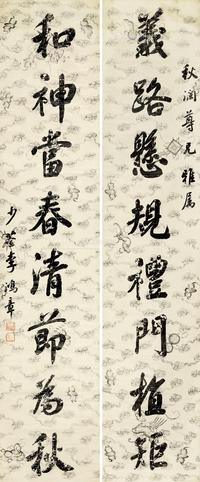 秋润尊兄雅属
義路懸規禮門植矩
和神當春清節為秋
少荃李鴻章